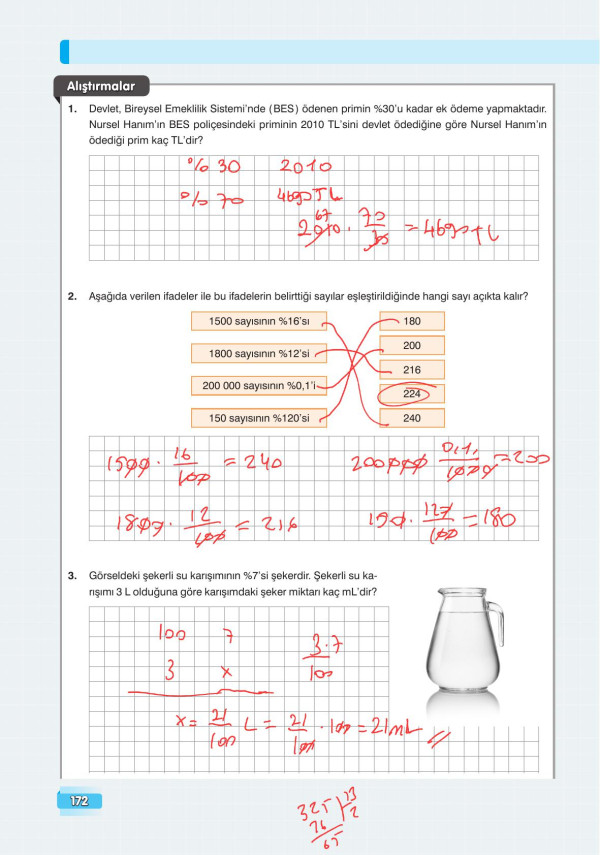 Alıştırmalar
1. Devlet, Bireysel Emeklilik Sistemi'nde (BES) ödenen primin %30'u kadar ek ödeme yapmaktadır.
Nursel Hanım'ın BES poliçesindeki priminin 2010 TL'sini devlet ödediğine göre Nursel Hanım'ın
ödediği prim kaç TL'dir?
% 30 2010
% 70 4690 TL
67
2010 · 70/30 = 4690 TL
2. Aşağıda verilen ifadeler ile bu ifadelerin belirttiği sayılar eşleştirildiğinde hangi sayı açıkta kalır?
1500 sayısının %16'sı 180
200
1800 sayısının %12'si 216
200 000 sayısının %0,1'i 224
150 sayısının %120'si 240
1500 · 16/100 = 240 200000 0,1/100 = 200
1800 · 12/100 = 216 150 · 120/100 = 180
3. Görseldeki şekerli su karışımının %7'si şekerdir. Şekerli su ka-
rışımı 3 L olduğuna göre karışımdaki şeker miktarı kaç mL'dir?
100 7 3·7/100
3 x
x = 21/100 L = 21/100 · 100 = 21 mL
172
325 13
26 2
65